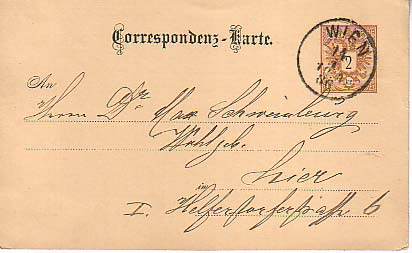 Correspondenz-Karte.
WIEN
2
An
Herrn Dr. Max Schweinburg
Wohlgeb.
hier
in
I. Helferstorferstraße 6